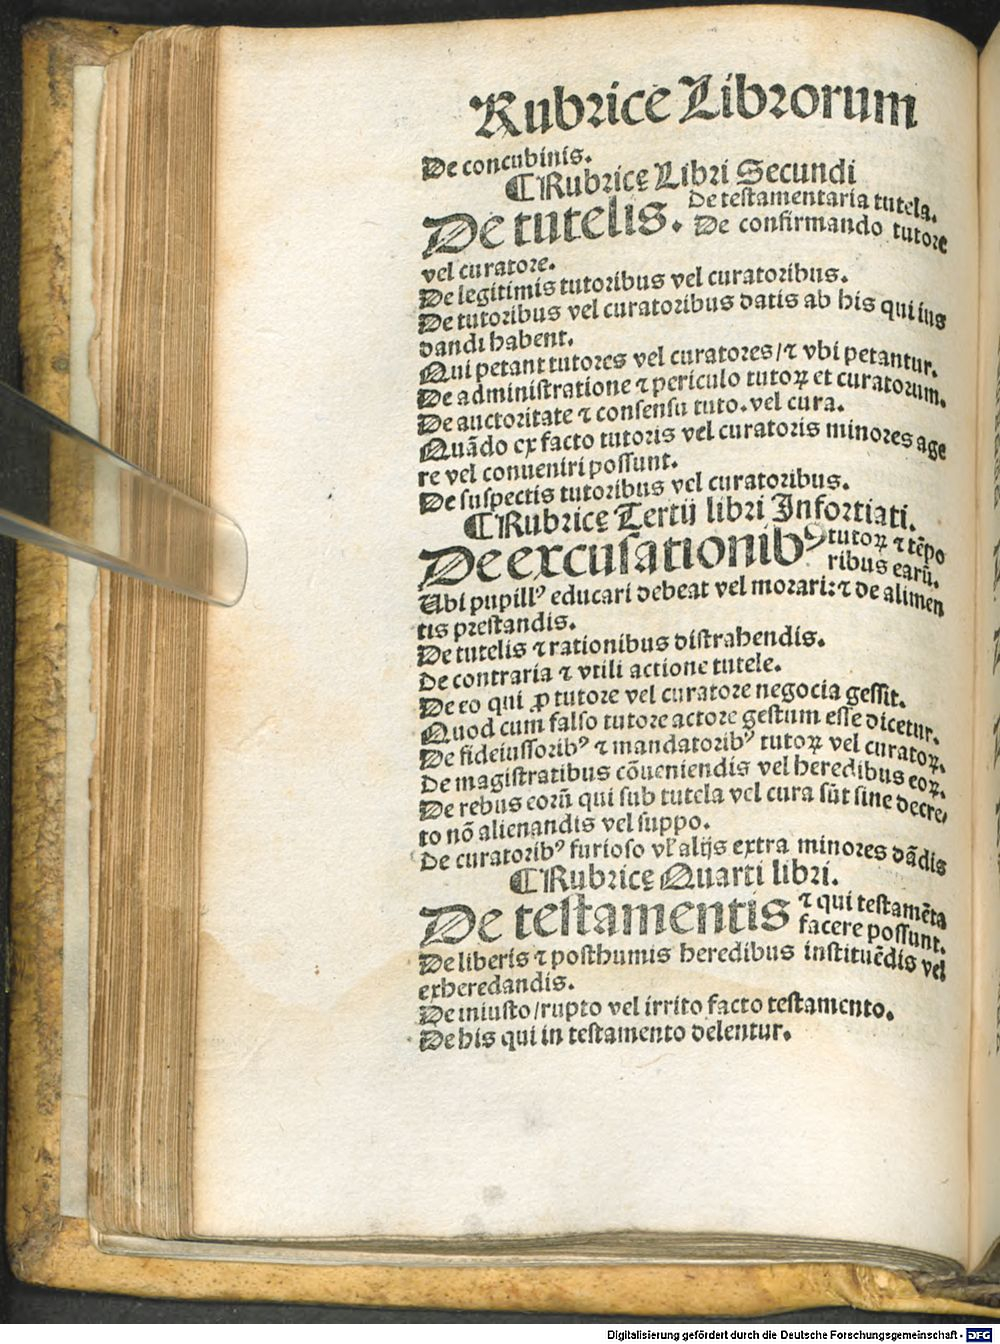 Rubrice Librorum
De concubinis.
⸿Rubricę Libri Secundi
De tutelis. De testamentaria tutela.
De confirmando tutore
vel curatore.
De legitimis tutoribus vel curatoribus.
De tutoribus vel curatoribus datis ab his qui ius
dandi habent.
Qui petant tutores vel curatores/⁊ vbi petantur.
De administratione ⁊ periculo tutoꝝ et curatorum.
De auctoritate ⁊ consensu tuto. vel cura.
Quãdo ex facto tutoris vel curatoris minores age
re vel conueniri possunt.
De suspectis tutoribus vel curatoribus.
⸿Rubricę Tertij libri Infortiati.
De excusationibꝰ tutoꝝ ⁊ tẽpo
ribus earũ.
Ubi pupillꝰ educari debeat vel morari: ⁊ de alimen
tis prestandis.
De tutelis ⁊ rationibus distrahendis.
De contraria ⁊ vtili actione tutele.
De eo qui ꝓ tutore vel curatore negocia gessit.
Quod cum falso tutore actore gestum esse dicetur.
De fideiussoribꝰ ⁊ mandatoribꝰ tutoꝝ vel curatoꝝ.
De magistratibus cõueniendis vel heredibus eoꝝ.
De rebus eorũ qui sub tutela vel cura sũt sine decre/
to nõ alienandis vel suppo.
De curatoribꝰ furioso vľ alijs extra minores dãdis
⸿Rubricę Quarti libri.
De testamentis ⁊ qui testamẽta
facere possunt.
De liberis ⁊ posthumis heredibus instituẽdis vel
exheredandis.
De iniusto/rupto vel irrito facto testamento.
De his qui in testamento delentur.
Digitalisierung gefördert durch die Deutsche Forschungsgemeinschaft - DFG